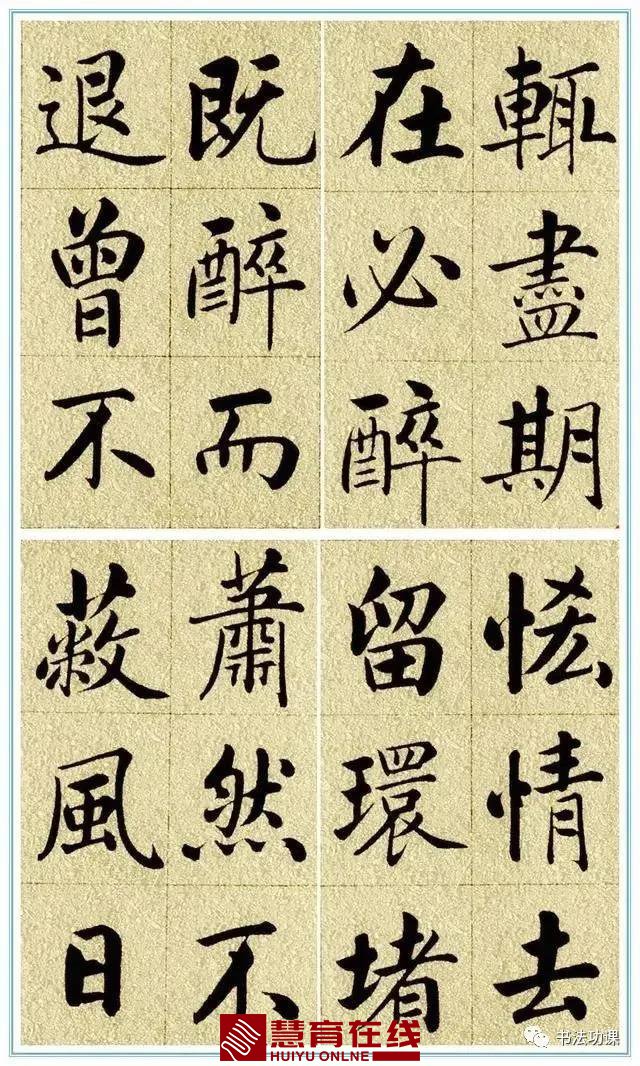 輒盡期
在必醉
既醉而
退曾不
恡情去
留環堵
蕭然不
蔽風日
慧育在线
HUIYU ONLINE
书法功课